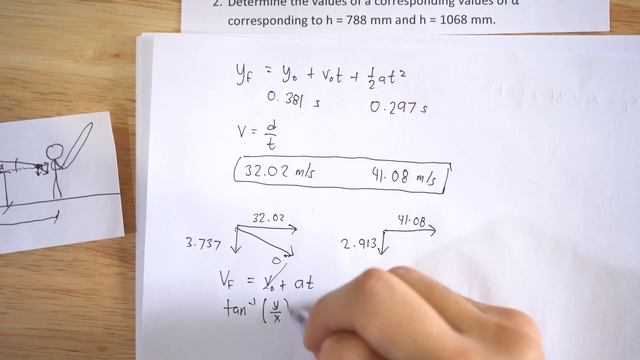 2. Determine the values of α corresponding values of α
corresponding to h = 788 mm and h = 1068 mm.
y_F = y_0 + v_0t + ½at²
0.381 s 0.297 s
V = d/t
32.02 m/s 41.08 m/s
32.02 41.08
3.737 2.913
0
V_F = v_0 + at
tan⁻¹ (y/x)